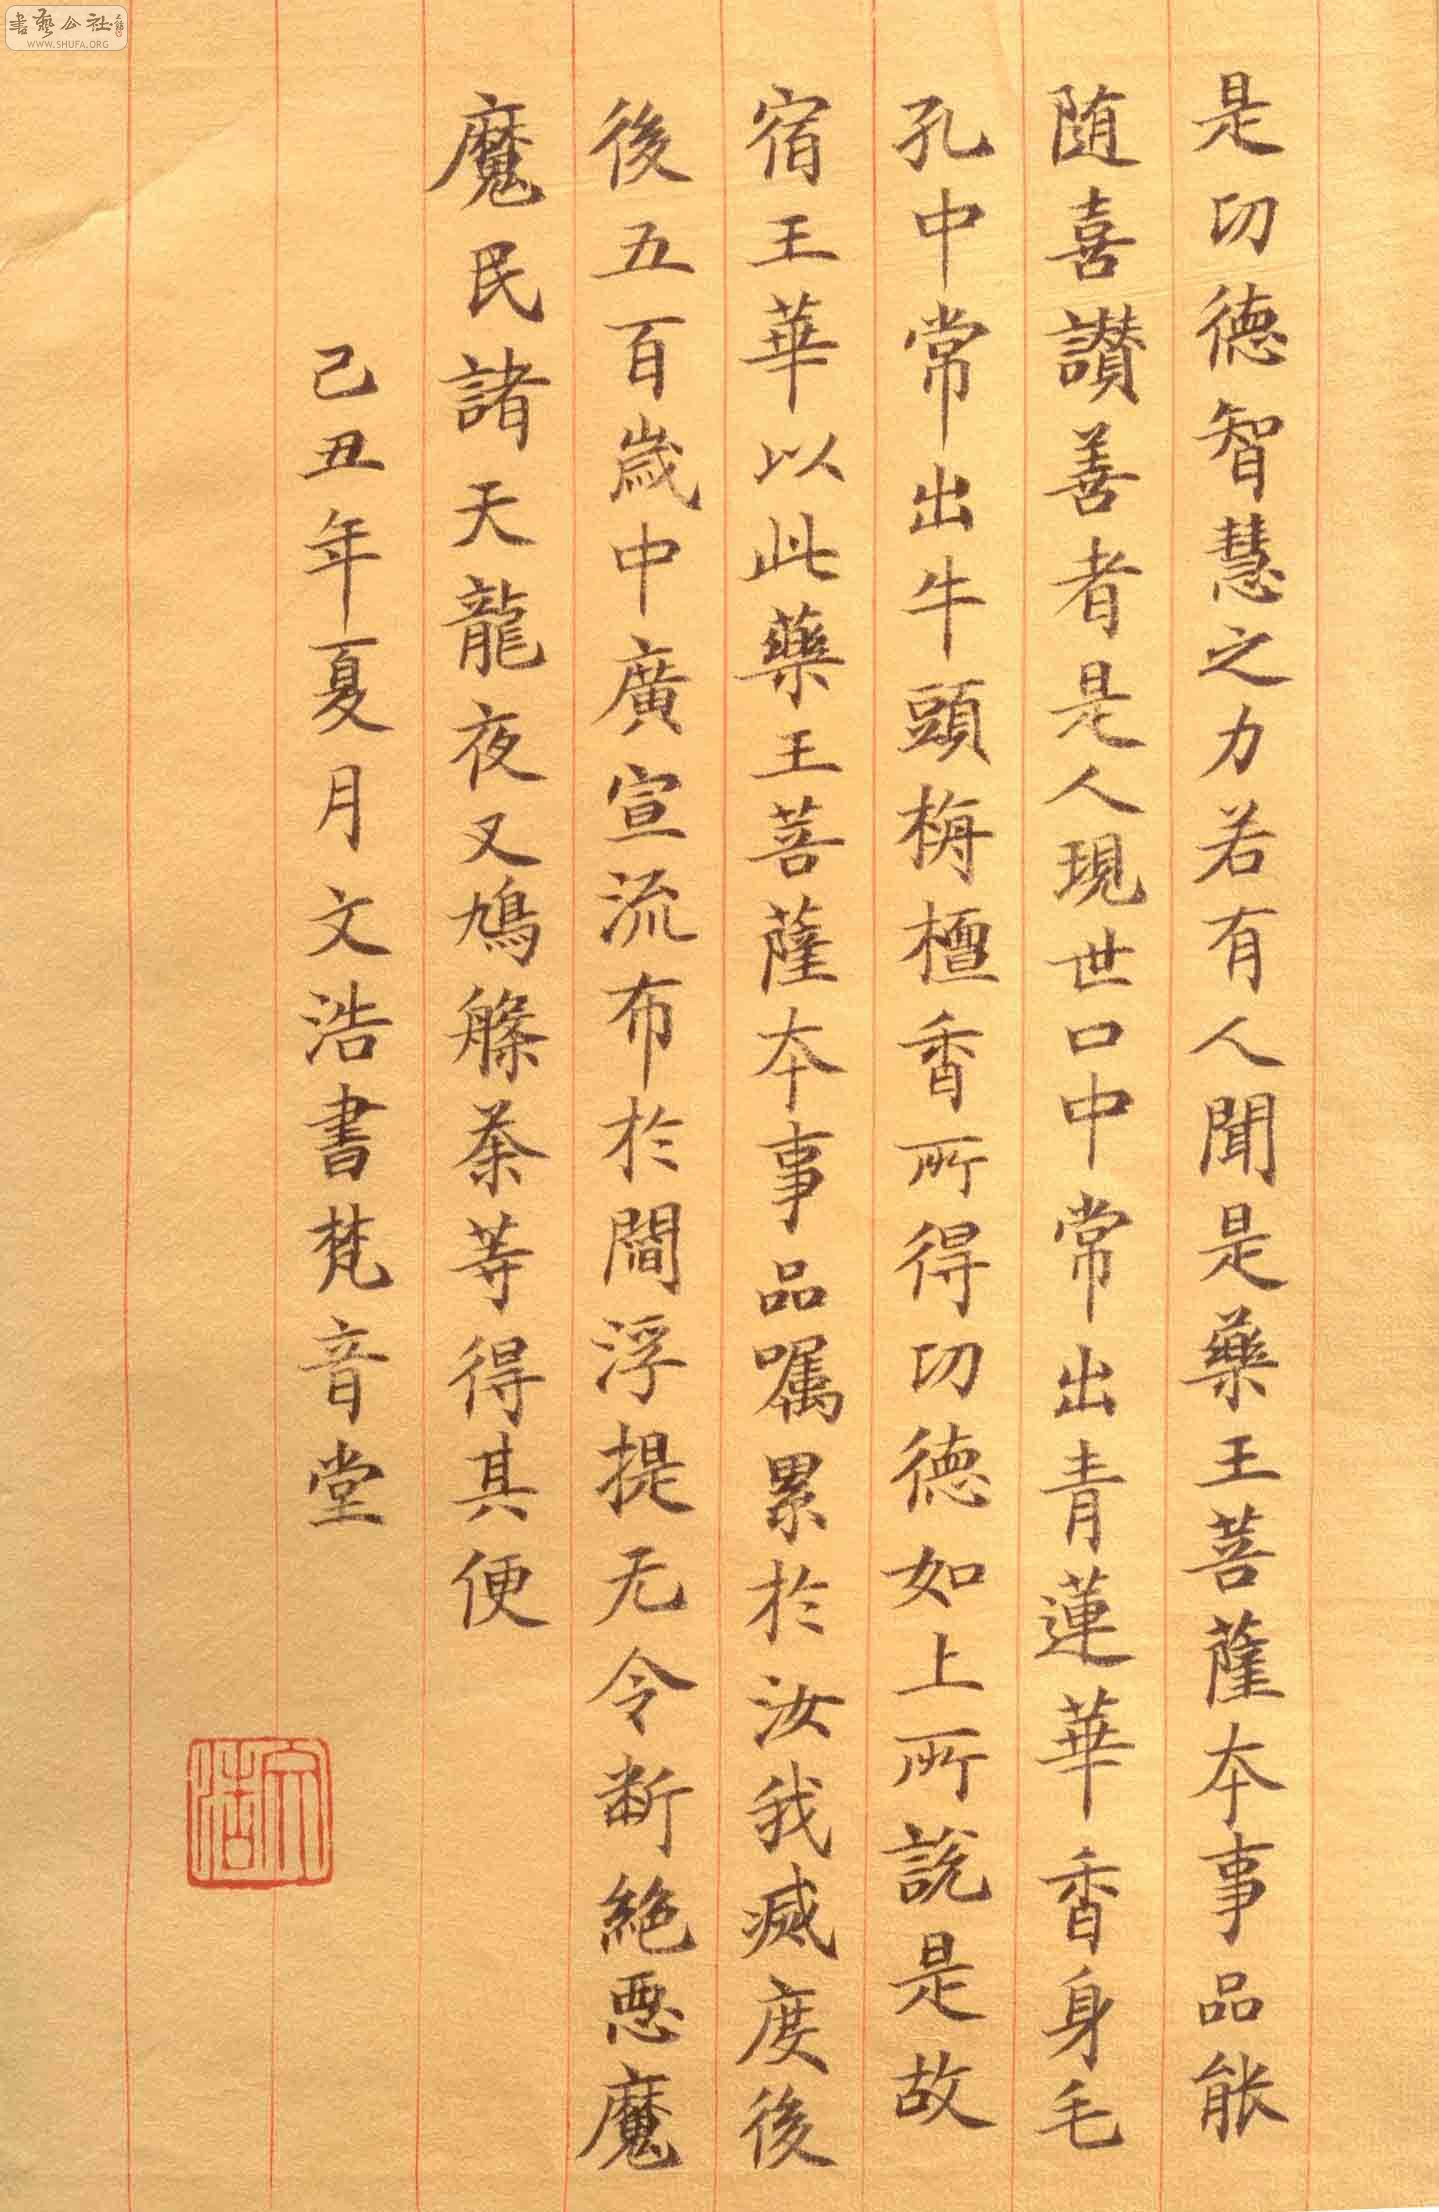 書藝公社
WWW.SHUFA.ORG
是功德智慧之力若有人聞是藥王菩薩本事品能
随喜讃善者是人現世口中常出青蓮華香身毛
孔中常出牛頭栴檀香所得功德如上所説是故
宿王華以此藥王菩薩本事品嘱累於汝我滅度後
後五百歳中廣宣流布於閻浮提无令断絶惡魔
魔民諸天龍夜叉鳩槃荼等得其便
己丑年夏月文浩書梵音堂
文浩